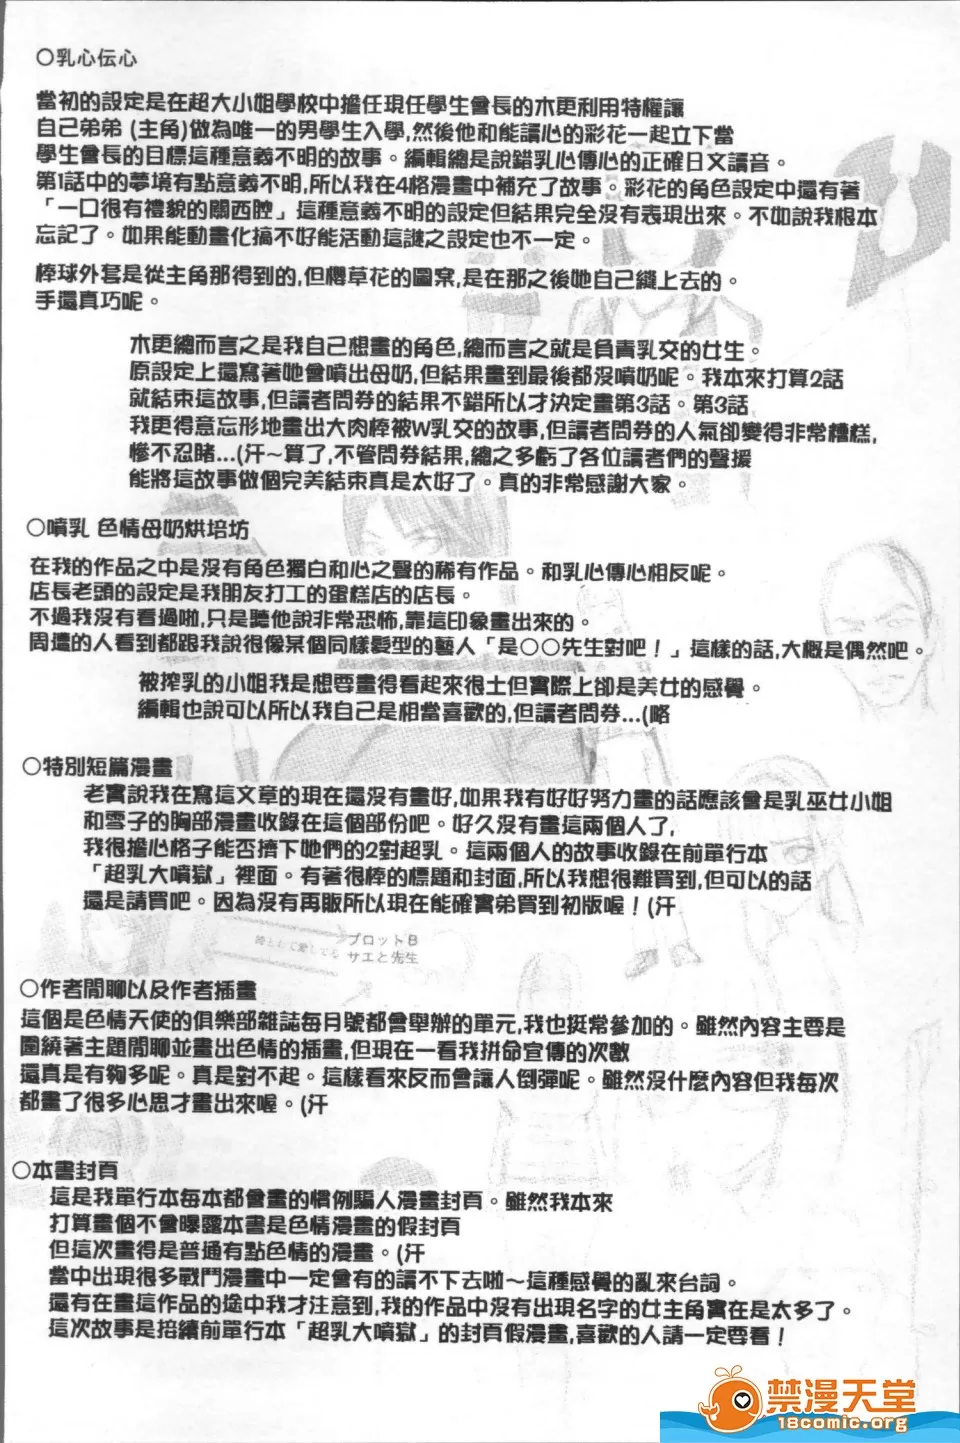 ○乳心伝心
當初的設定是在超大小姐學校中擔任現任學生會長的木更利用特權讓
自己弟弟 (主角)做為唯一的男學生入學,然後他和能讀心的彩花一起立下當
學生會長的目標這種意義不明的故事。編輯總是說錯乳心傳心的正確日文讀音。
第1話中的夢境有點意義不明,所以我在4格漫畫中補充了故事。彩花的角色設定中還有著
「一口很有禮貌的關西腔」這種意義不明的設定但結果完全沒有表現出來。不如說我根本
忘記了。如果能動畫化搞不好能活動這謎之設定也不一定。
棒球外套是從主角那得到的,但櫻草花的圖案,是在那之後她自己縫上去的。
手還真巧呢。
木更總而言之是我自己想畫的角色,總而言之就是負責乳交的女生。
原設定上還寫著她會噴出母奶,但結果畫到最後都沒噴奶呢。我本來打算2話
就結束這故事,但讀者問券的結果不錯所以才決定畫第3話。第3話
我更得意忘形地畫出大肉棒被W乳交的故事,但讀者問券的人氣卻變得非常糟糕,
慘不忍賭...(汗～算了,不管問券結果,總之多虧了各位讀者們的聲援
能將這故事做個完美結束真是太好了。真的非常感謝大家。
○噴乳 色情母奶烘培坊
在我的作品之中是沒有角色獨白和心之聲的稀有作品。和乳心傳心相反呢。
店長老頭的設定是我朋友打工的蛋糕店的店長。
不過我沒有看過啦,只是聽他說非常恐怖,靠這印象畫出來的。
周遭的人看到都跟我說很像某個同樣髮型的藝人「是○○先生對吧！」這樣的話,大概是偶然吧。
被搾乳的小姐我是想要畫得看起來很土但實際上卻是美女的感覺。
編輯也說可以所以我自己是相當喜歡的,但讀者問券...(略
○特別短篇漫畫
老實說我在寫這文章的現在還沒有畫好,如果我有好好努力畫的話應該會是乳巫女小姐
和雪子的胸部漫畫收錄在這個部份吧。好久沒有畫這兩個人了,
我很擔心格子能否擠下她們的2對超乳。這兩個人的故事收錄在前單行本
「超乳大噴獄」裡面。有著很棒的標題和封面,所以我想很難買到,但可以的話
還是請買吧。因為沒有再販所以現在能確實弟買到初版喔！(汗
誰として愛してる
プロットB
サエと先生
○作者閒聊以及作者插畫
這個是色情天使的俱樂部雜誌每月號都會舉辦的單元,我也挺常參加的。雖然內容主要是
圍繞著主題閒聊並畫出色情的插畫,但現在一看我拼命宣傳的次數
還真是有夠多呢。真是對不起。這樣看來反而會讓人倒彈呢。雖然沒什麼內容但我每次
都畫了很多心思才畫出來喔。(汗
○本書封頁
這是我單行本每本都會畫的慣例騙人漫畫封頁。雖然我本來
打算畫個不會曝露本書是色情漫畫的假封頁
但這次畫得是普通有點色情的漫畫。(汗
當中出現很多戰鬥漫畫中一定會有的讀不下去啦～這種感覺的亂來台詞。
還有在畫這作品的途中我才注意到,我的作品中沒有出現名字的女主角實在是太多了。
這次故事是接續前單行本「超乳大噴獄」的封頁假漫畫,喜歡的人請一定要看！
禁漫天堂
18comic.org